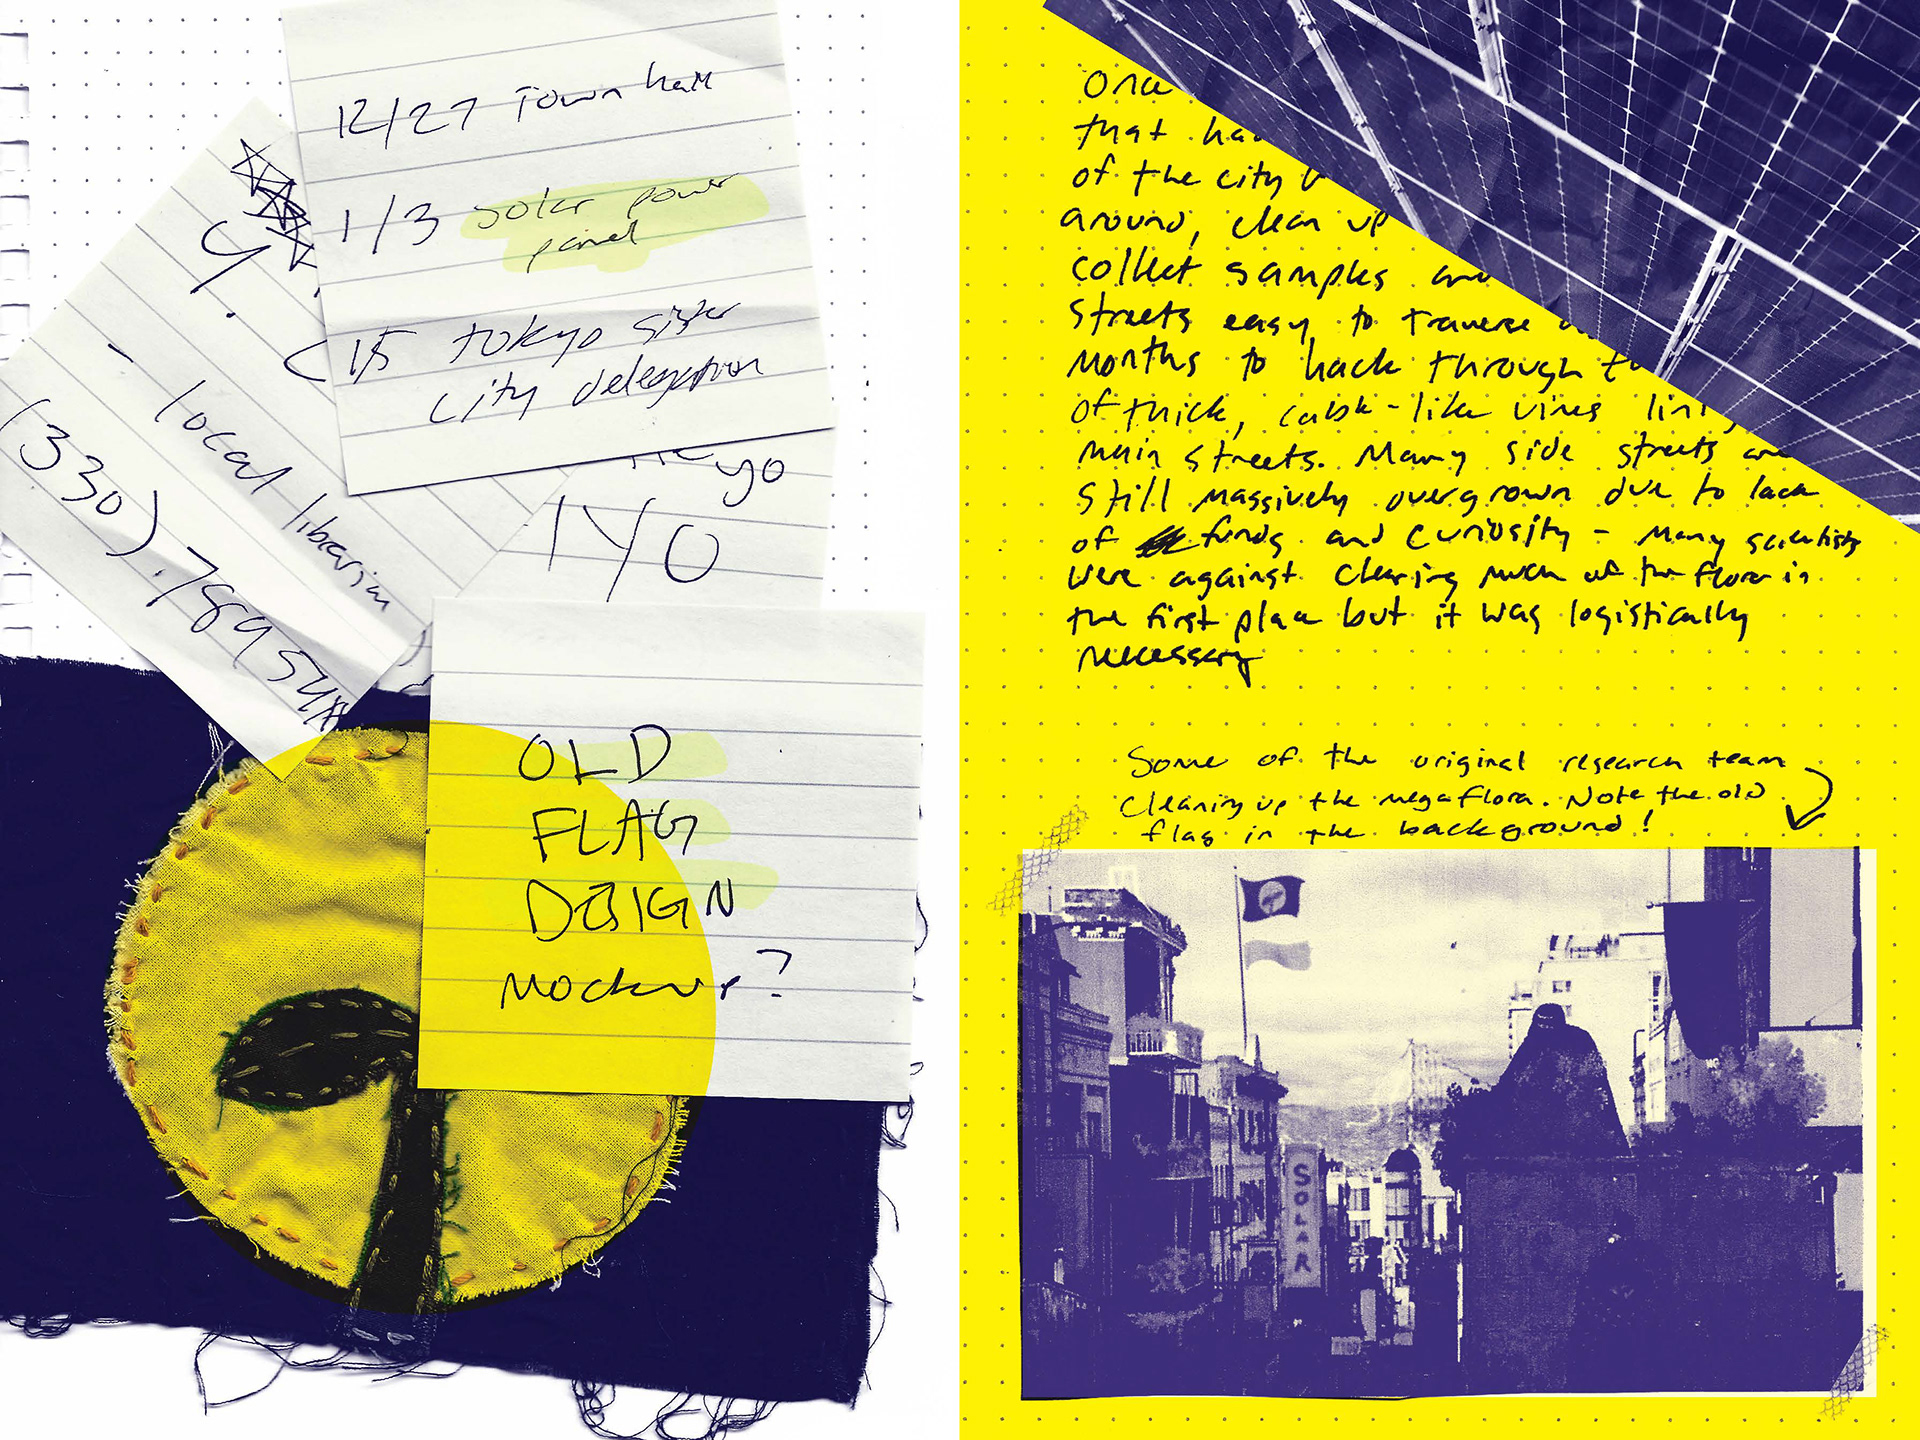 12/27 Town hall
1/3 solar power
panel
1/5 tokyo sister
city delegation
y.
- local librarian
(330).789 54
yo
1YO
OLD
FLAG
DESIGN
Mockup?
Once
that ha
of the city
around, clean up
collect samples an
streets easy to traverse
months to hack through t
of thick, cable-like vines lin
main streets. Many side streets are
still massively overgrown due to lack
of funds and curiosity - Many scientists
were against clearing much of the flora in
the first place but it was logistically
necessary
Some of the original research team
cleaning up the megaflora. Note the old
flag in the background!
SOLAR